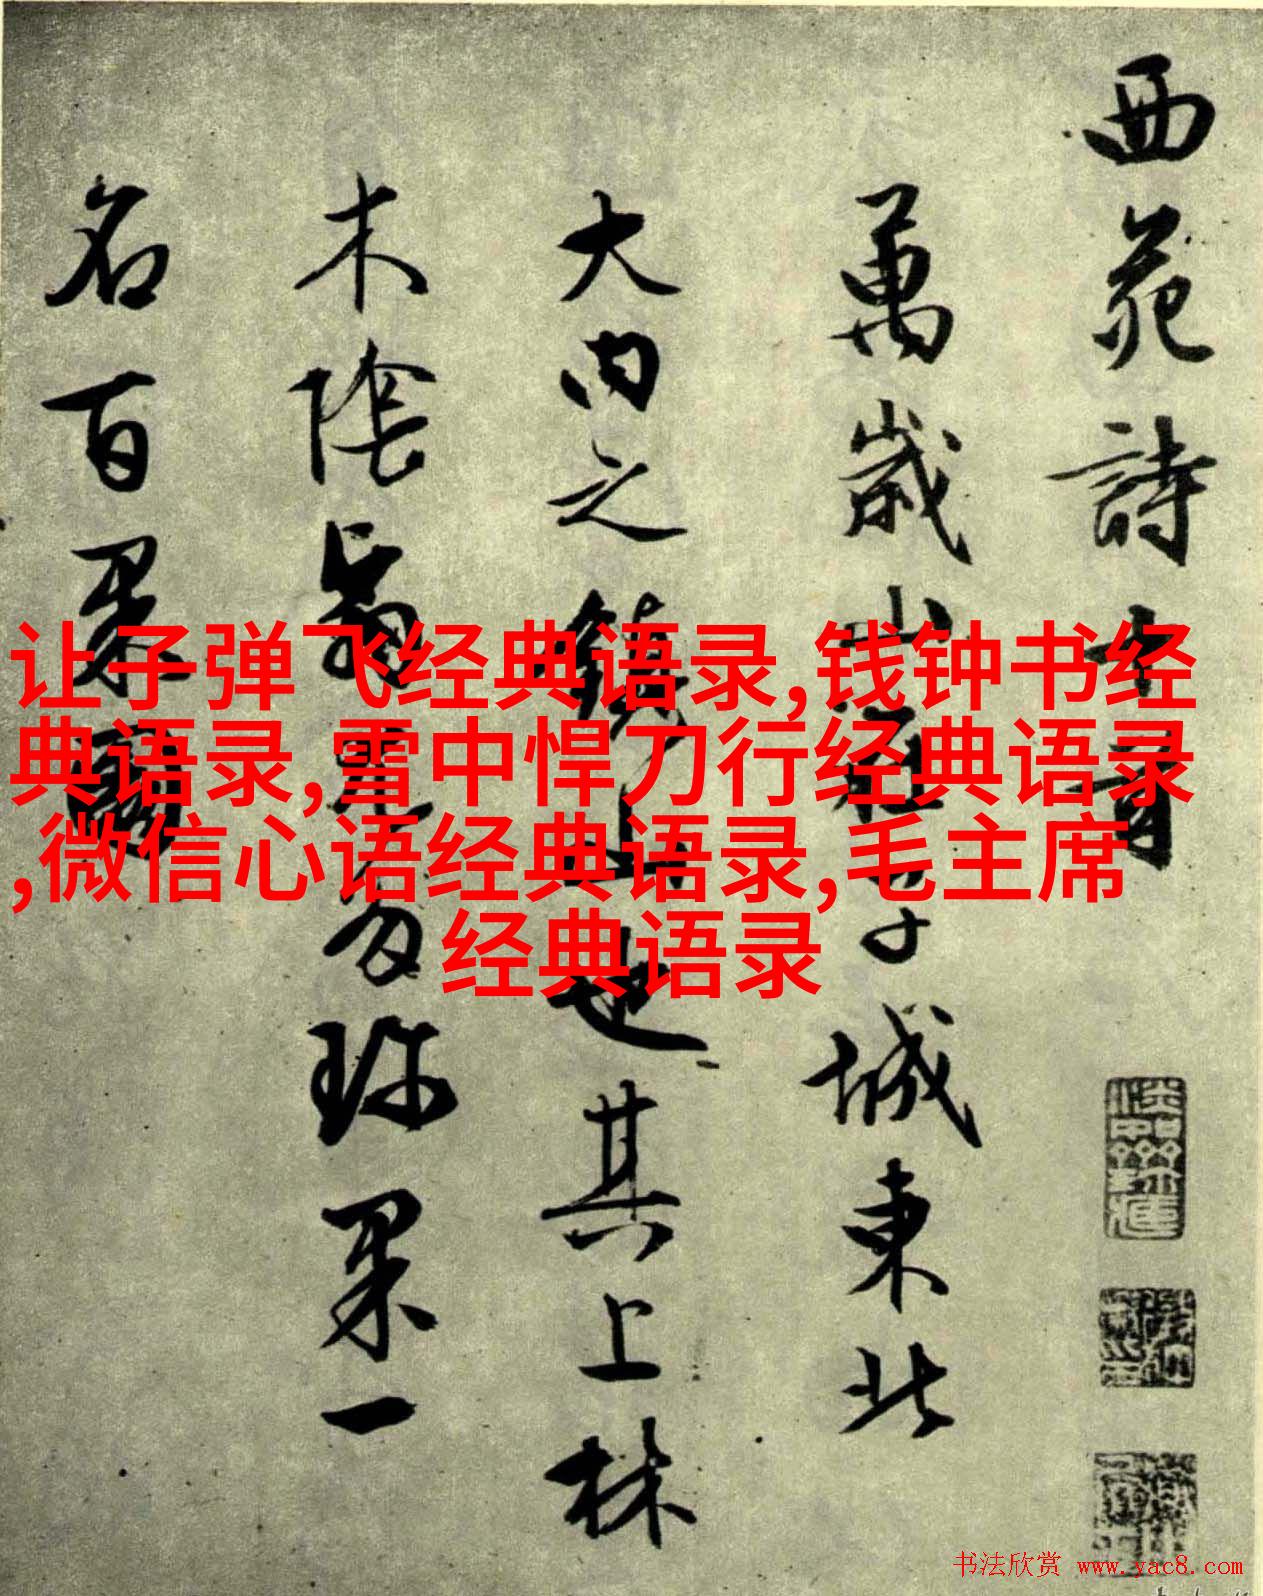 西苑詩十首
萬歲山在子城東北
大内之鎮山也其上林
木陰翳尤多珍果一
名百果園
让子弹飞经典语录,钱钟书经
典语录,雪中悍刀行经典语录
,微信心语经典语录,毛主席
经典语录
书法欣赏 www.yac8.com